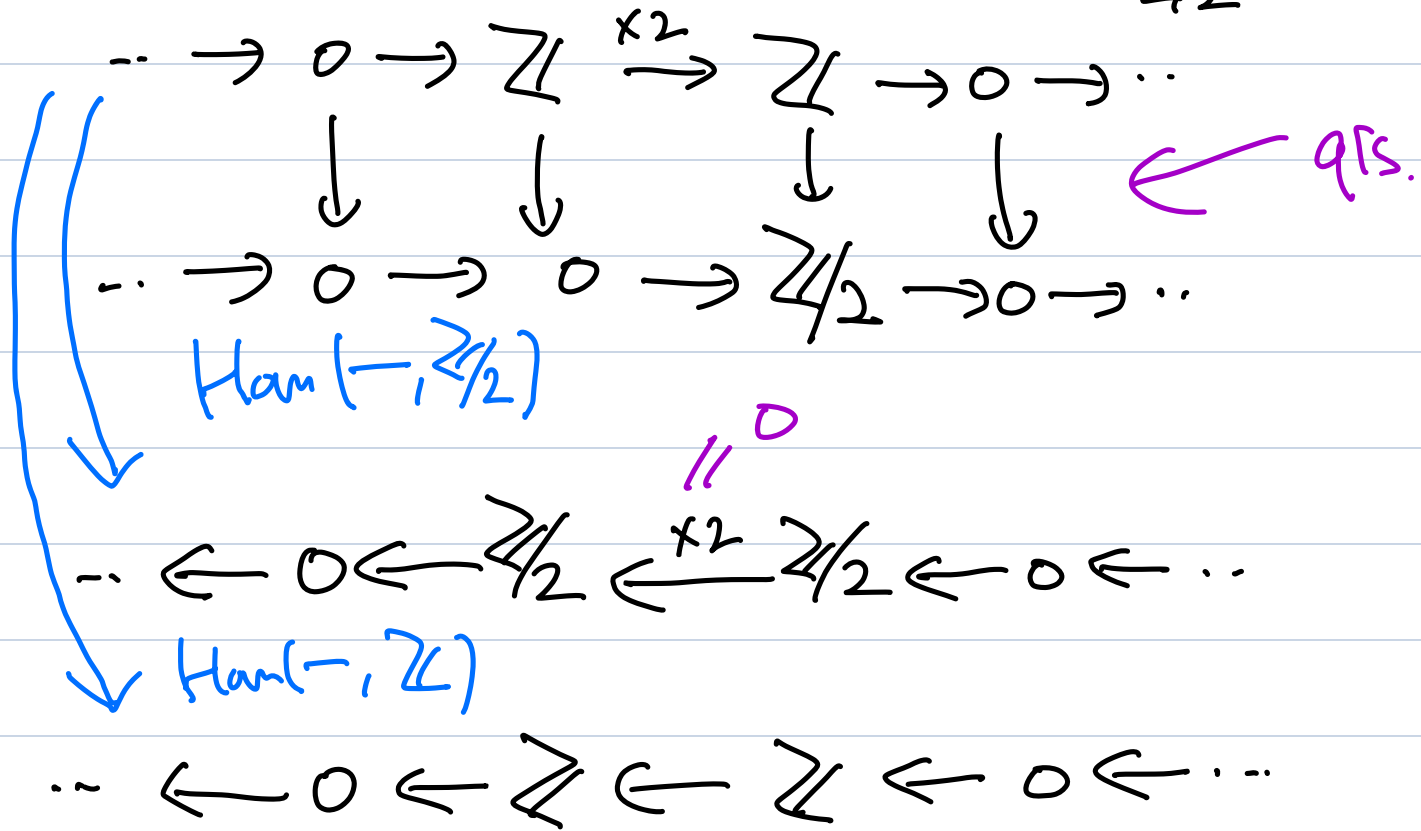 ··· → 0 → ℤ →^{×2} ℤ → 0 → ···
↓ ↓ ↓ ↓ ← qIs.
··· → 0 → 0 → ℤ/2 → 0 → ···
Hom(−, ℤ/2)
0
=
··· ← 0 ← ℤ/2 ←^{×2} ℤ/2 ← 0 ← ···
Hom(−, ℤ)
··· ← 0 ← ℤ ← ℤ ← 0 ← ···